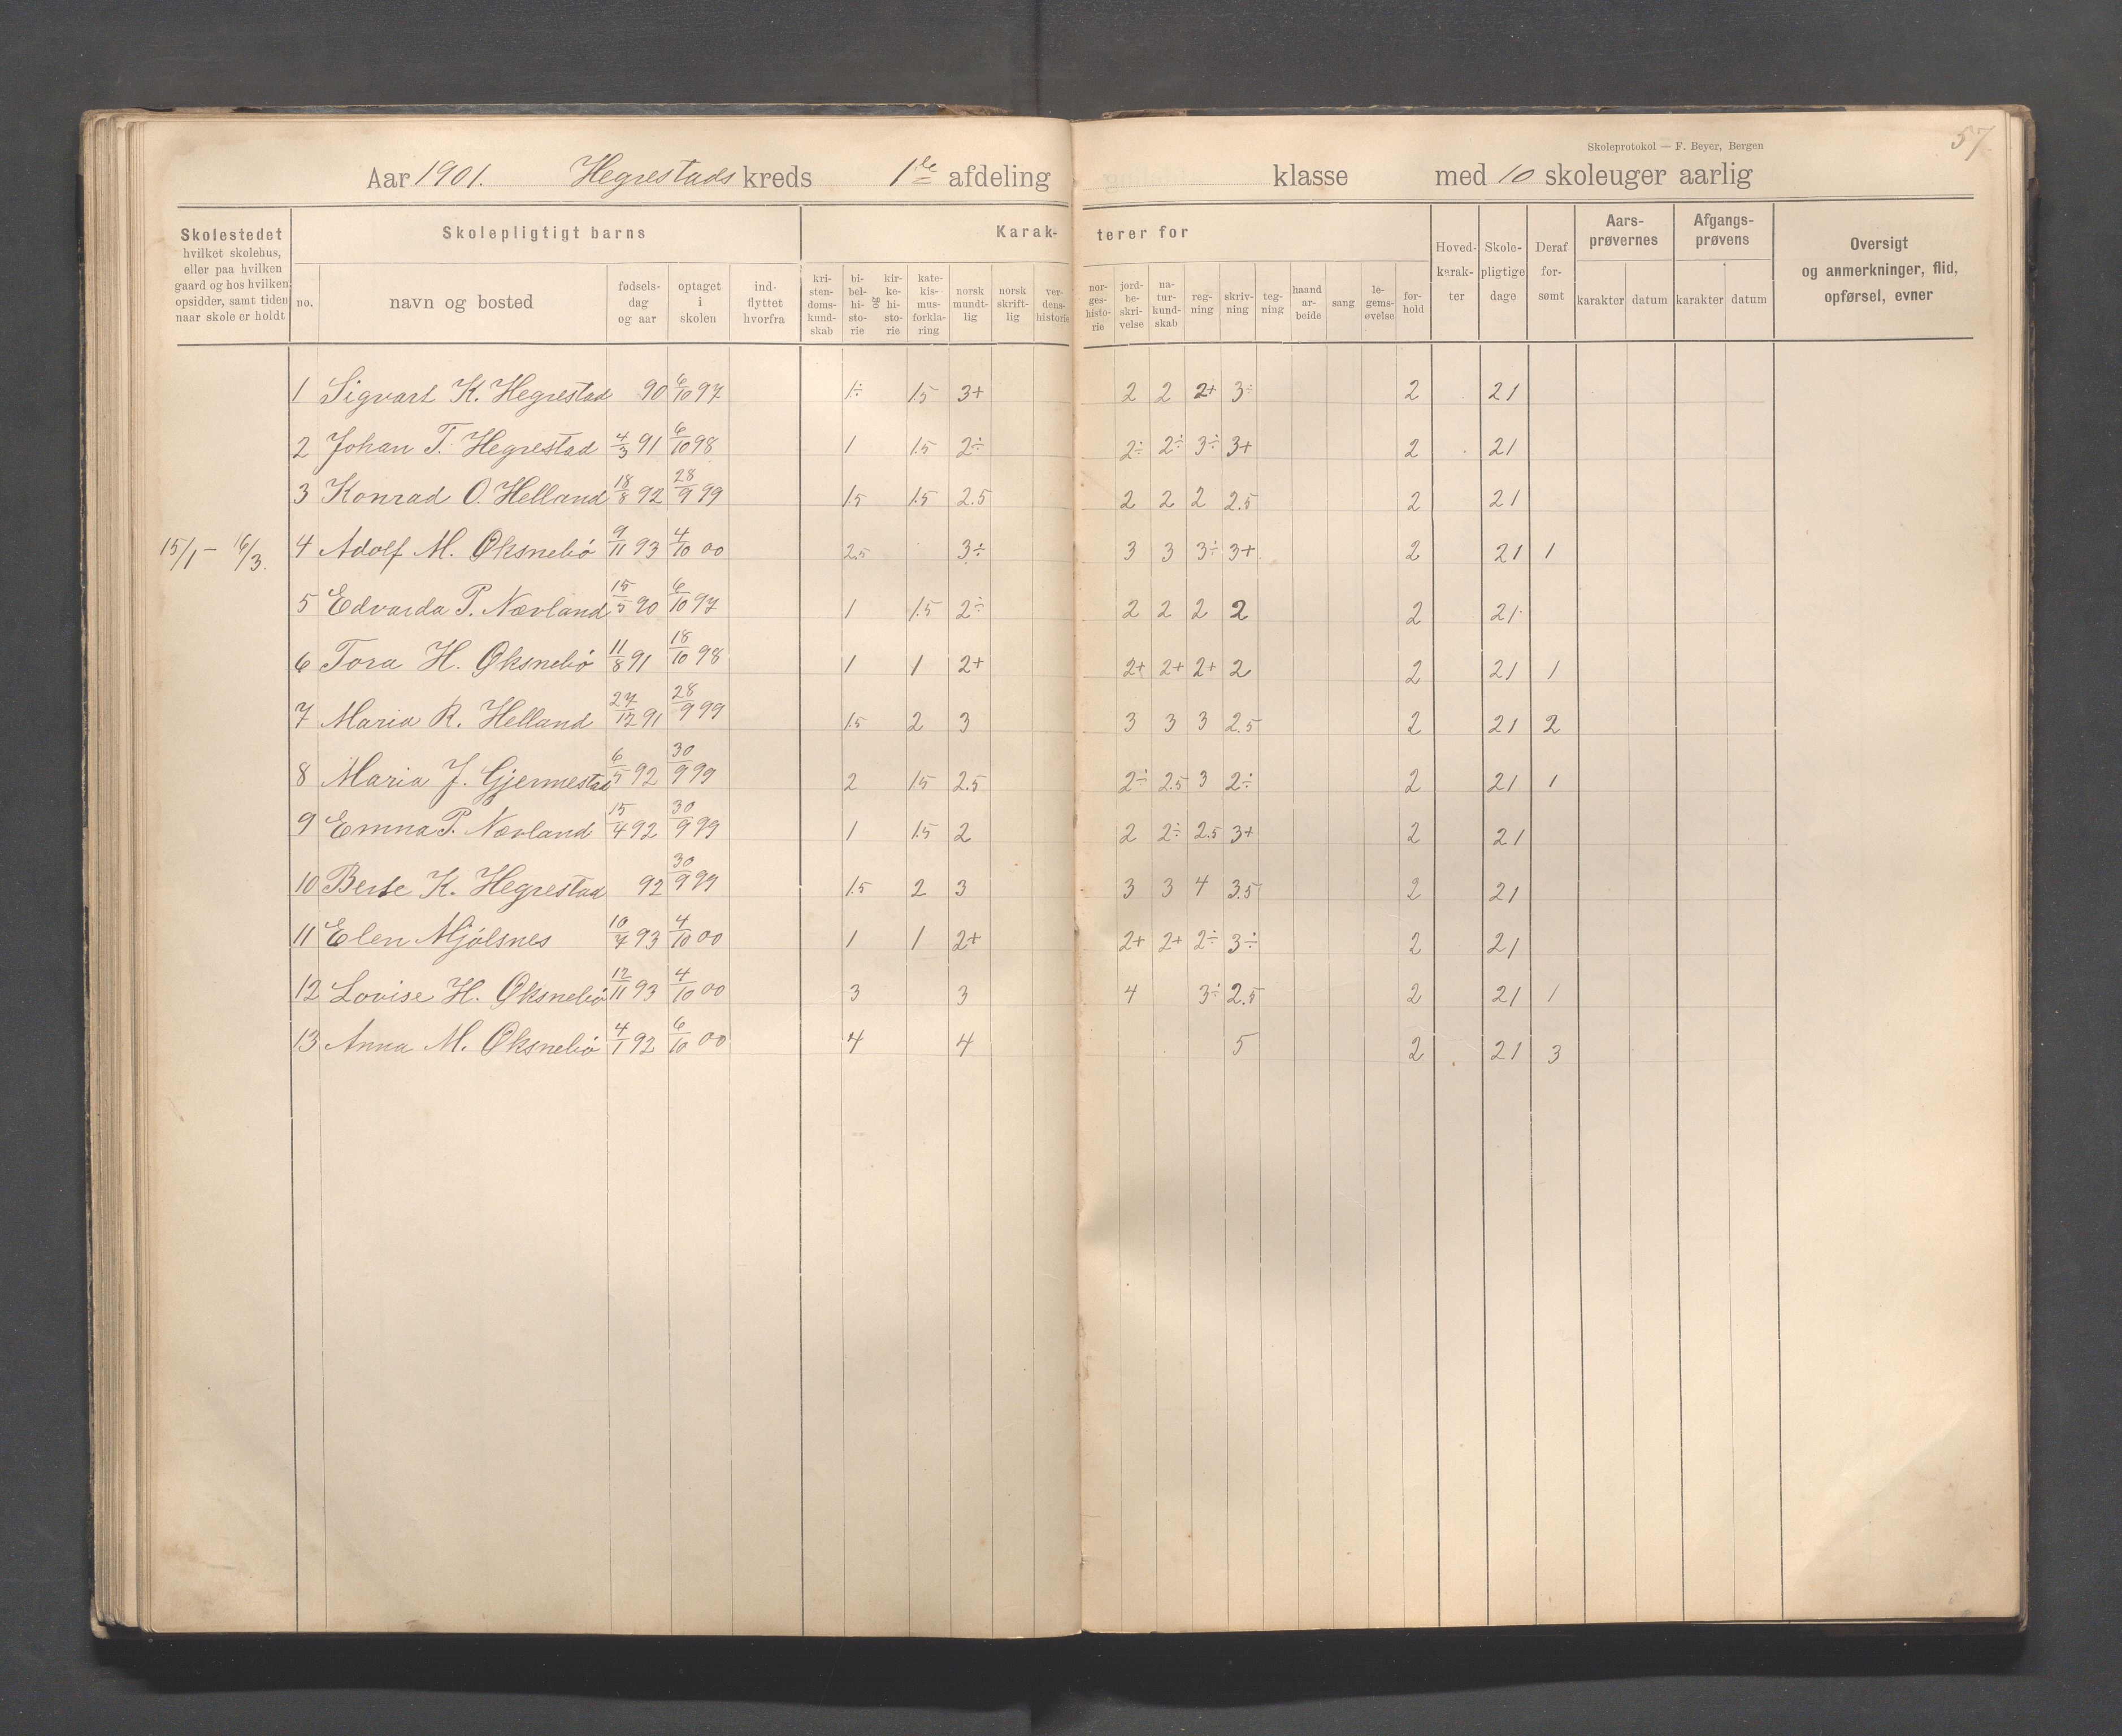 57
Skoleprotokol — F. Beyer, Bergen
Aar 1901. Hegrestads kreds 1ste afdeling klasse med 10 skoleuger aarlig
Skolestedet hvilket skolehus, eller paa hvilken gaard og hos hvilken opsidder, samt tiden naar skole er holdt
Skolepligtigt barns
Karak- terer for
no. navn og bosted fødsels- dag og aar optaget i skolen ind- flyttet hvorfra
kri- sten- doms- kund- skab bi- bel- hi- sto- rie og kir- ke- hi- sto- rie kate- kis- mus- forkla- ring norsk mundt- lig norsk skrift- lig ver- dens- historie nor- ges- histo- rie jord- be- skri- velse na- tur- kund- skab reg- ning skriv- ning teg- ning haand ar- beide sang le- gems- øvelse for- hold
Hoved- karak- ter Skole- pligtige dage Deraf for- sømt Aars- prøvernes karakter datum Afgangs- prøvens karakter datum Oversigt og anmerkninger, flid, opførsel, evner
1 Sigvart K. Hegrestad 90 6/10 97 1÷ 1.5 3+ 2 2 2+ 3÷ 2 21
2 Johan T. Hegrestad 4/3 91 6/10 98 1 1.5 2÷ 2÷ 2÷ 3÷ 3+ 2 21
3 Konrad O. Helland 18/8 92 28/9 99 1.5 1.5 2.5 2 2 2 2.5 2 21
15/1 - 16/3. 4 Adolf M. Øksnebö 9/11 93 4/10 00 2.5 3÷ 3 3 3÷ 3+ 2 21 1
5 Edvarda P. Nævland 15/5 90 6/10 97 1 1.5 2÷ 2 2 2 2 2 21
6 Tora H. Øksnebö 11/8 91 18/10 98 1 1 2+ 2+ 2+ 2+ 2 2 21 1
7 Maria R. Helland 27/12 91 28/9 99 1.5 2 3 3 3 3 2.5 2 21 2
8 Maria J. Gjermestad 6/5 92 30/9 99 2 1.5 2.5 2÷ 2.5 3 2÷ 2 21 1
9 Emma P. Nævland 15/4 92 30/9 99 1 1.5 2 2 2÷ 2.5 3+ 2 21
10 Berte K. Hegrestad 92 30/9 99 1.5 2 3 3 3 4 3.5 2 21
11 Elen Mjölsnes 10/4 93 4/10 00 1 1 2+ 2+ 2+ 2÷ 3÷ 2 21
12 Lovise H. Øksnebö 12/11 93 4/10 00 3 3 4 3÷ 2.5 2 21 1
13 Anna M. Øksnebö 4/1 92 6/10 00 4 4 5 2 21 3